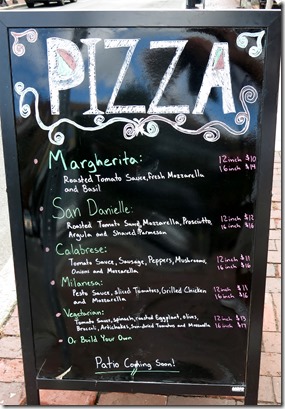 PIZZA
Margherita: 12 inch $10
Roasted Tomato Sauce, fresh Mozzarella 16 inch $14
and Basil
San Danielle:
Roasted Tomato Sauce, Mozzarella, Prosciutto, 12 inch $12
Argula and Shaved Parmesan 16 inch $16
Calabrese:
Tomato Sauce, Sausage, Peppers, Mushrooms, 12 inch $11
Onions and Mozzarella 16 inch $16
Milanesa:
Pesto Sauce, sliced Tomatoes, Grilled Chicken 12 inch $11
and Mozzarella 16 inch $16
Vegetarian:
Tomato Sauce, spinach, roasted Eggplant, olives, 12 inch $13
Broccoli, Artichokes, Sun-dried Tomatoes and Mozzarella 16 inch $17
Or Build Your Own
Patio Coming Soon!